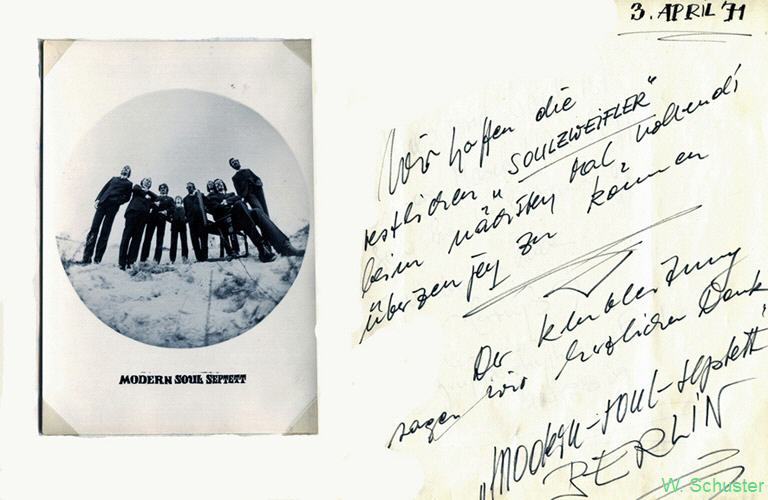 3. APRIL '71
Wir hoffen die
restlichen „SOULZWEIFLER“
beim nächsten Mal vollends
überzeugen zu können
Der Klubleitung
sagen wir herzlichen Dank
„Modern-Soul-Septett“
BERLIN
MODERN SOUL SEPTETT
W. Schuster